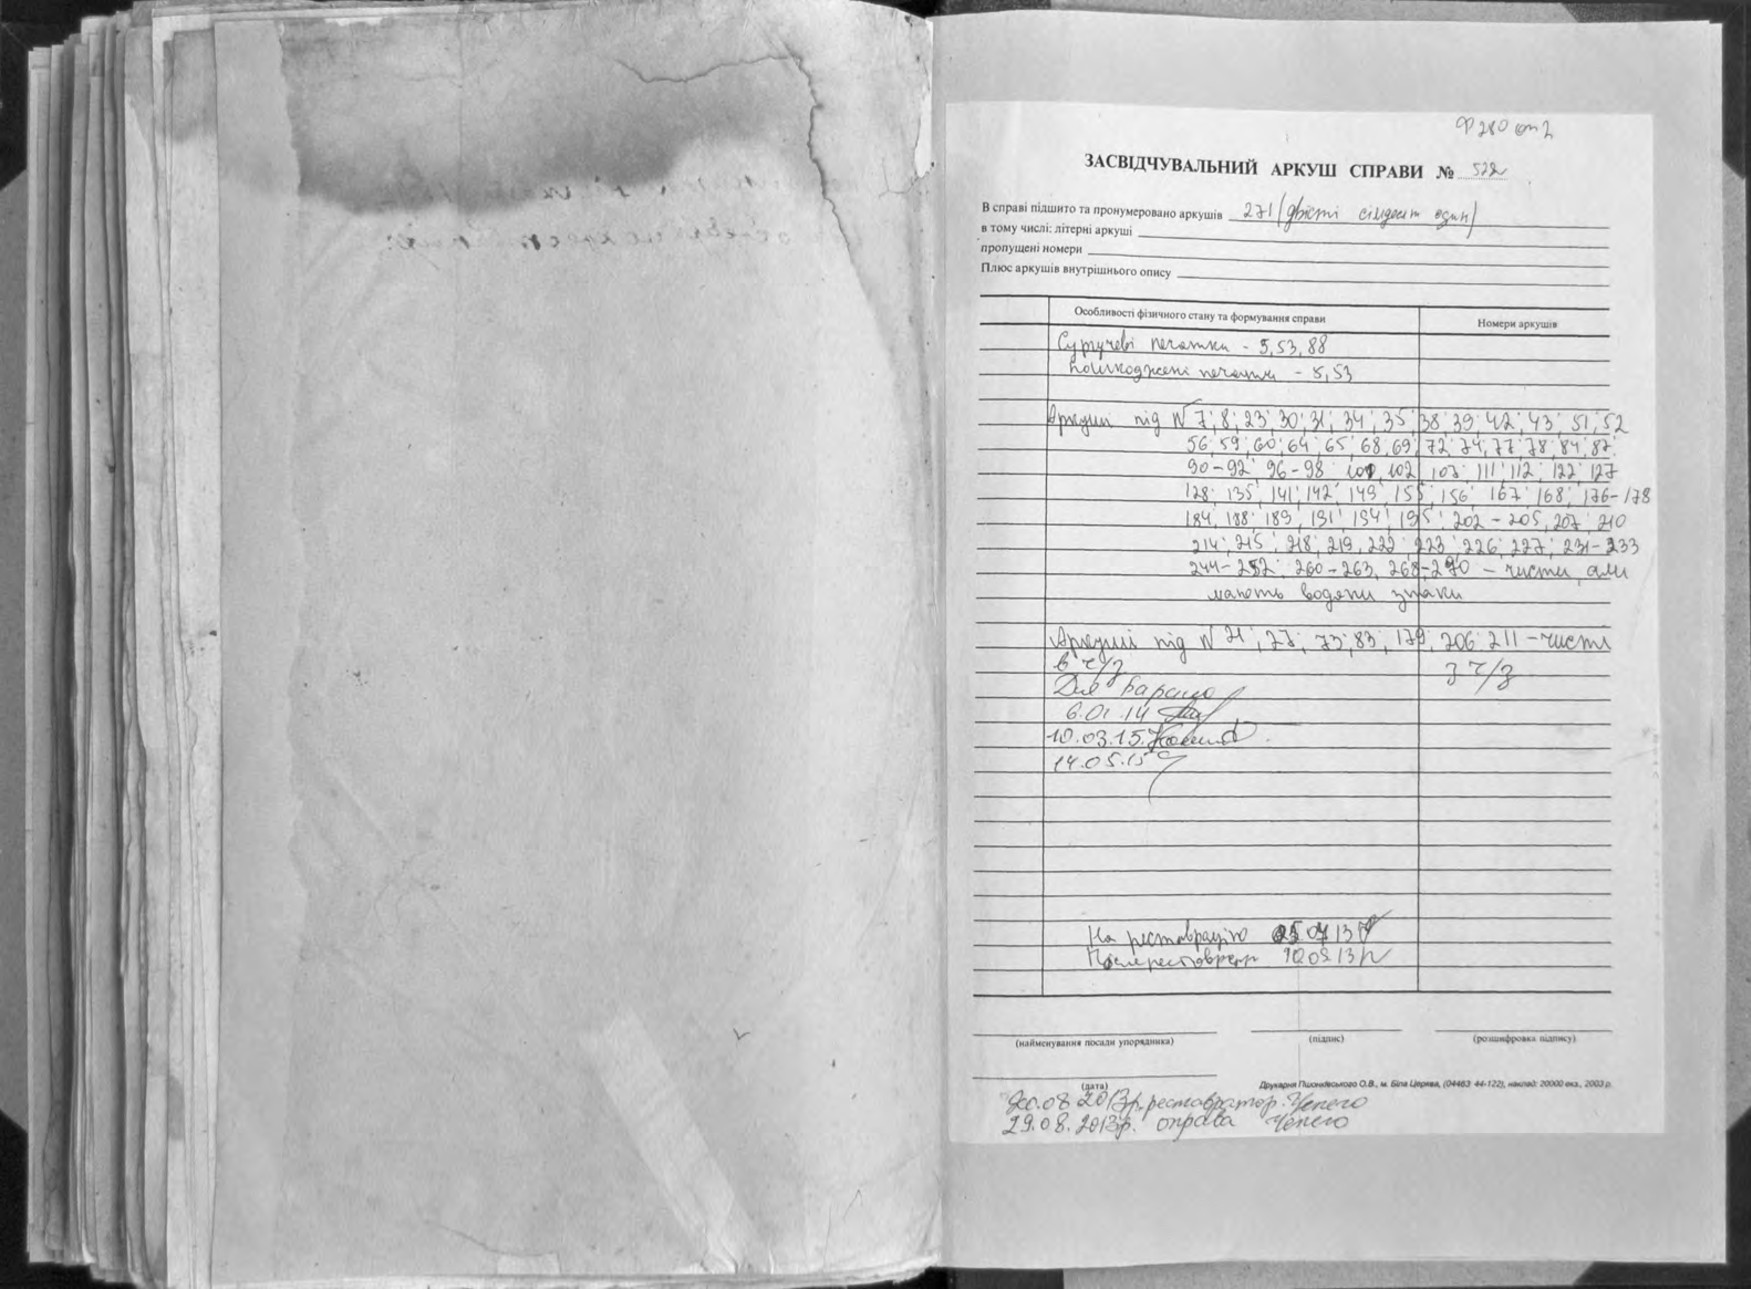 Ф 280 оп 2
ЗАСВІДЧУВАЛЬНИЙ АРКУШ СПРАВИ № 522
В справі підшито та пронумеровано аркушів 271 (двісті сімдесят один)
в тому числі: літерні аркуші
пропущені номери
Плюс аркушів внутрішнього опису
Особливості фізичного стану та формування справи Номери аркушів
Сургучеві печатки - 5, 53, 88
Пошкоджені печатки - 5, 53
Аркуші під № 7; 8; 23; 30; 31; 34; 35; 38; 39; 42; 43; 51; 52
56; 59; 60; 64; 65; 68; 69; 72; 74; 77; 78; 84; 87;
90-92; 96-98; 101, 102; 103; 111; 112; 122; 127
128; 135; 141; 142; 149; 155; 156; 167; 168; 176-178
184, 188; 189, 191; 194; 195; 202-205, 207; 210
214; 215; 218; 219, 222; 223; 226; 227; 231-233
244-252; 260-263, 268-270 - чисти, али
мають водяни знаки
Аркуші під № 21; 27; 73; 83; 179; 206; 211 - чисті
в ч/з З ч/з
Для
6.01.14
10.03.15
14.05.15
На реставрацію 25 04 13
Після реставрації 10 09 13
(найменування посади упорядника) (підпис) (розшифровка підпису)
(дата) Друкарня Пшонківського О.В., м. Біла Церква, (04463 44-122), наклад: 20000 екз., 2003 р.
30.08 2013р. реставратор Чепего
29.08.2013р. оправа Чепего